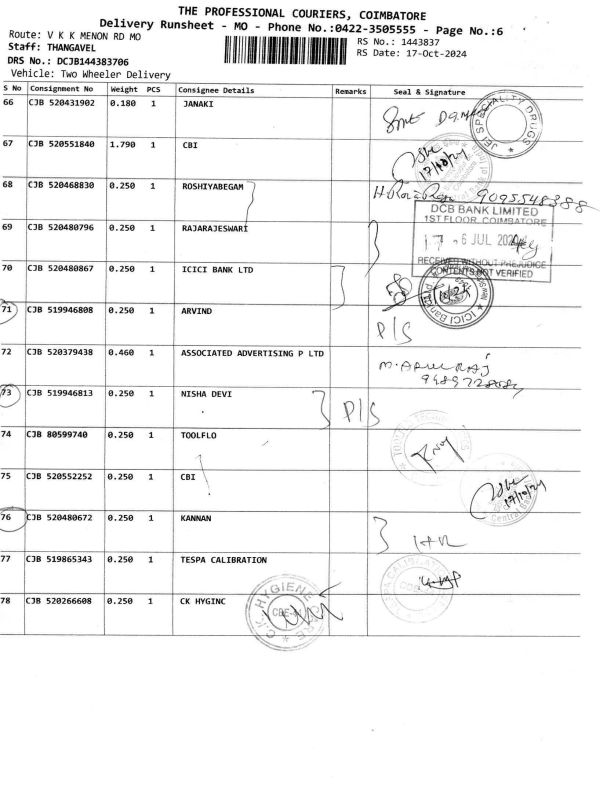 THE PROFESSIONAL COURIERS, COIMBATORE
Delivery Runsheet - MO - Phone No.:0422-3505555 - Page No.:6
Route: V K K MENON RD MO
RS No.: 1443837
Staff: THANGAVEL
RS Date: 17-Oct-2024
DRS No.: DCJB144383706
Vehicle: Two Wheeler Delivery
S No Consignment No Weight PCS Consignee Details Remarks Seal & Signature
66 CJB 520431902 0.180 1 JANAKI
JEI SPECIALITY DRUGS
67 CJB 520551840 1.790 1 CBI
17/10/24
68 CJB 520468830 0.250 1 ROSHIYABEGAM
9095548388
DCB BANK LIMITED
1ST FLOOR, COIMBATORE
69 CJB 520480796 0.250 1 RAJARAJESWARI
RECEIVED WITHOUT PREJUDICE
CONTENTS NOT VERIFIED
70 CJB 520480867 0.250 1 ICICI BANK LTD
ICICI Bank
71 CJB 519946808 0.250 1 ARVIND
P/S
72 CJB 520379438 0.460 1 ASSOCIATED ADVERTISING P LTD
73 CJB 519946813 0.250 1 NISHA DEVI
P/S
74 CJB 80599740 0.250 1 TOOLFLO
75 CJB 520552252 0.250 1 CBI
17/10/24
Central Bank
76 CJB 520480672 0.250 1 KANNAN
77 CJB 519865343 0.250 1 TESPA CALIBRATION
78 CJB 520266608 0.250 1 CK HYGINC
C.K. HYGIENE CARE